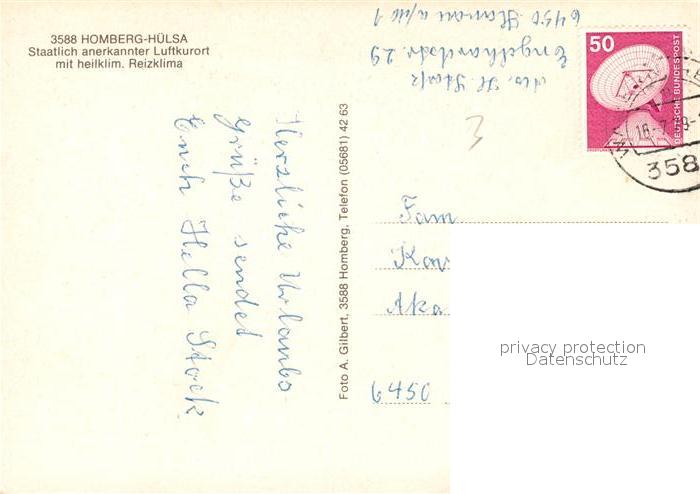 3588 HOMBERG-HÜLSA
Staatlich anerkannter Luftkurort
mit heilklim. Reizklima
Herzliche Urlaubs
grüße sendet
Euch Hella Stock
Foto A. Gilbert, 3588 Homberg, Telefon (05681) 42 63
Abs. H. Stock
Engelhardstr. 29
6450 Hanau a/M 1
50
DEUTSCHE BUNDESPOST
358
3
Fam
Aka
6450
privacy protection
Datenschutz